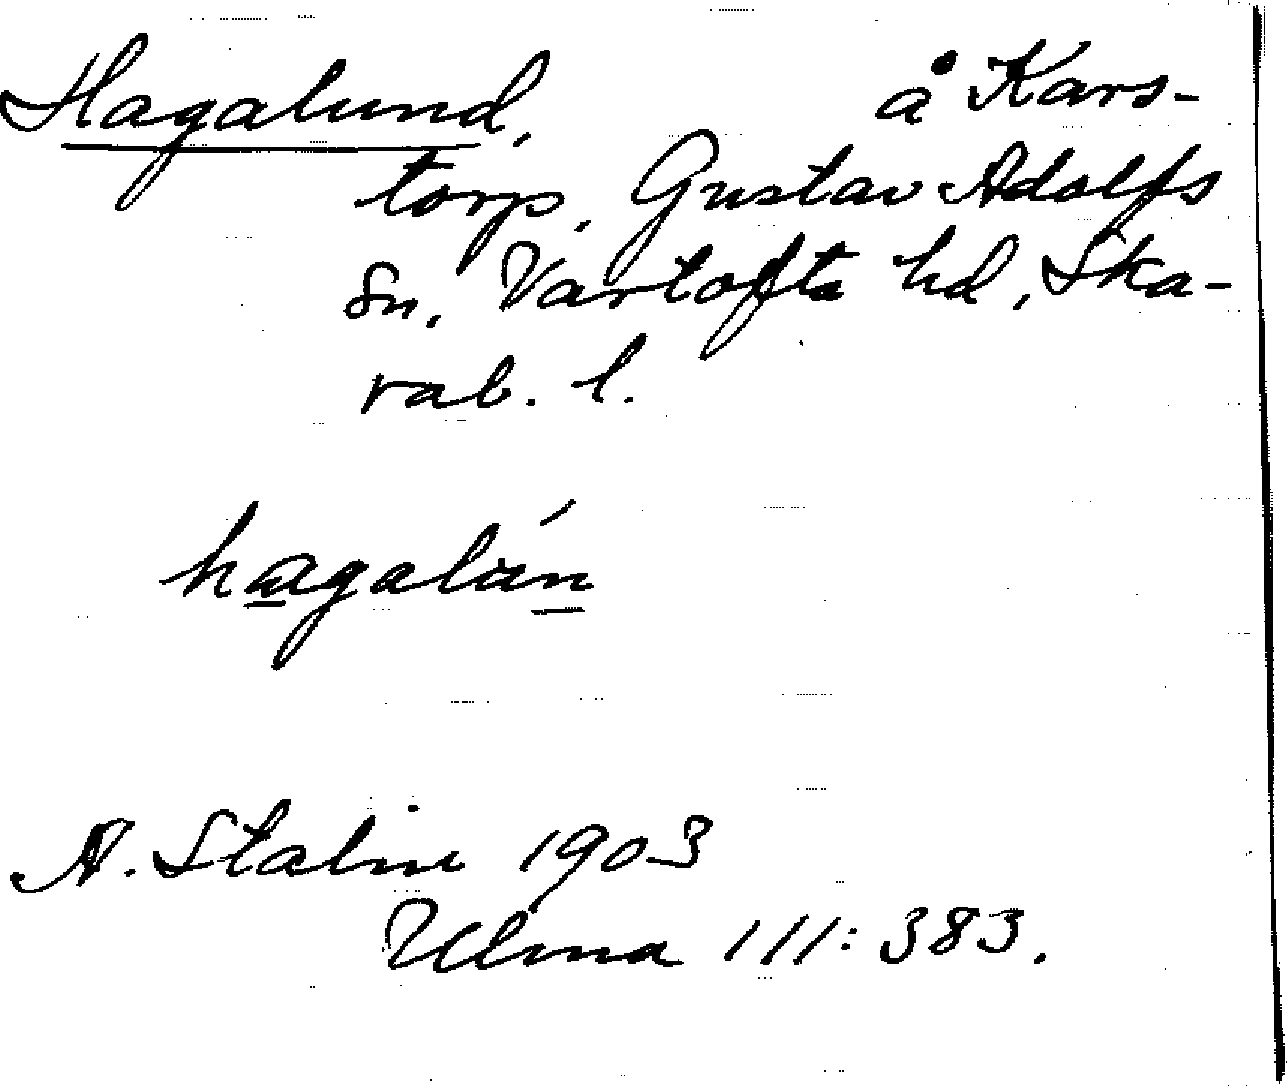 Hagalund, å Kars-
torp, Gustav Adolfs
sn, Vartofta hd, Ska-
rab. l.
hagalún
A. Stalin 1903
Ulma 111: 383.